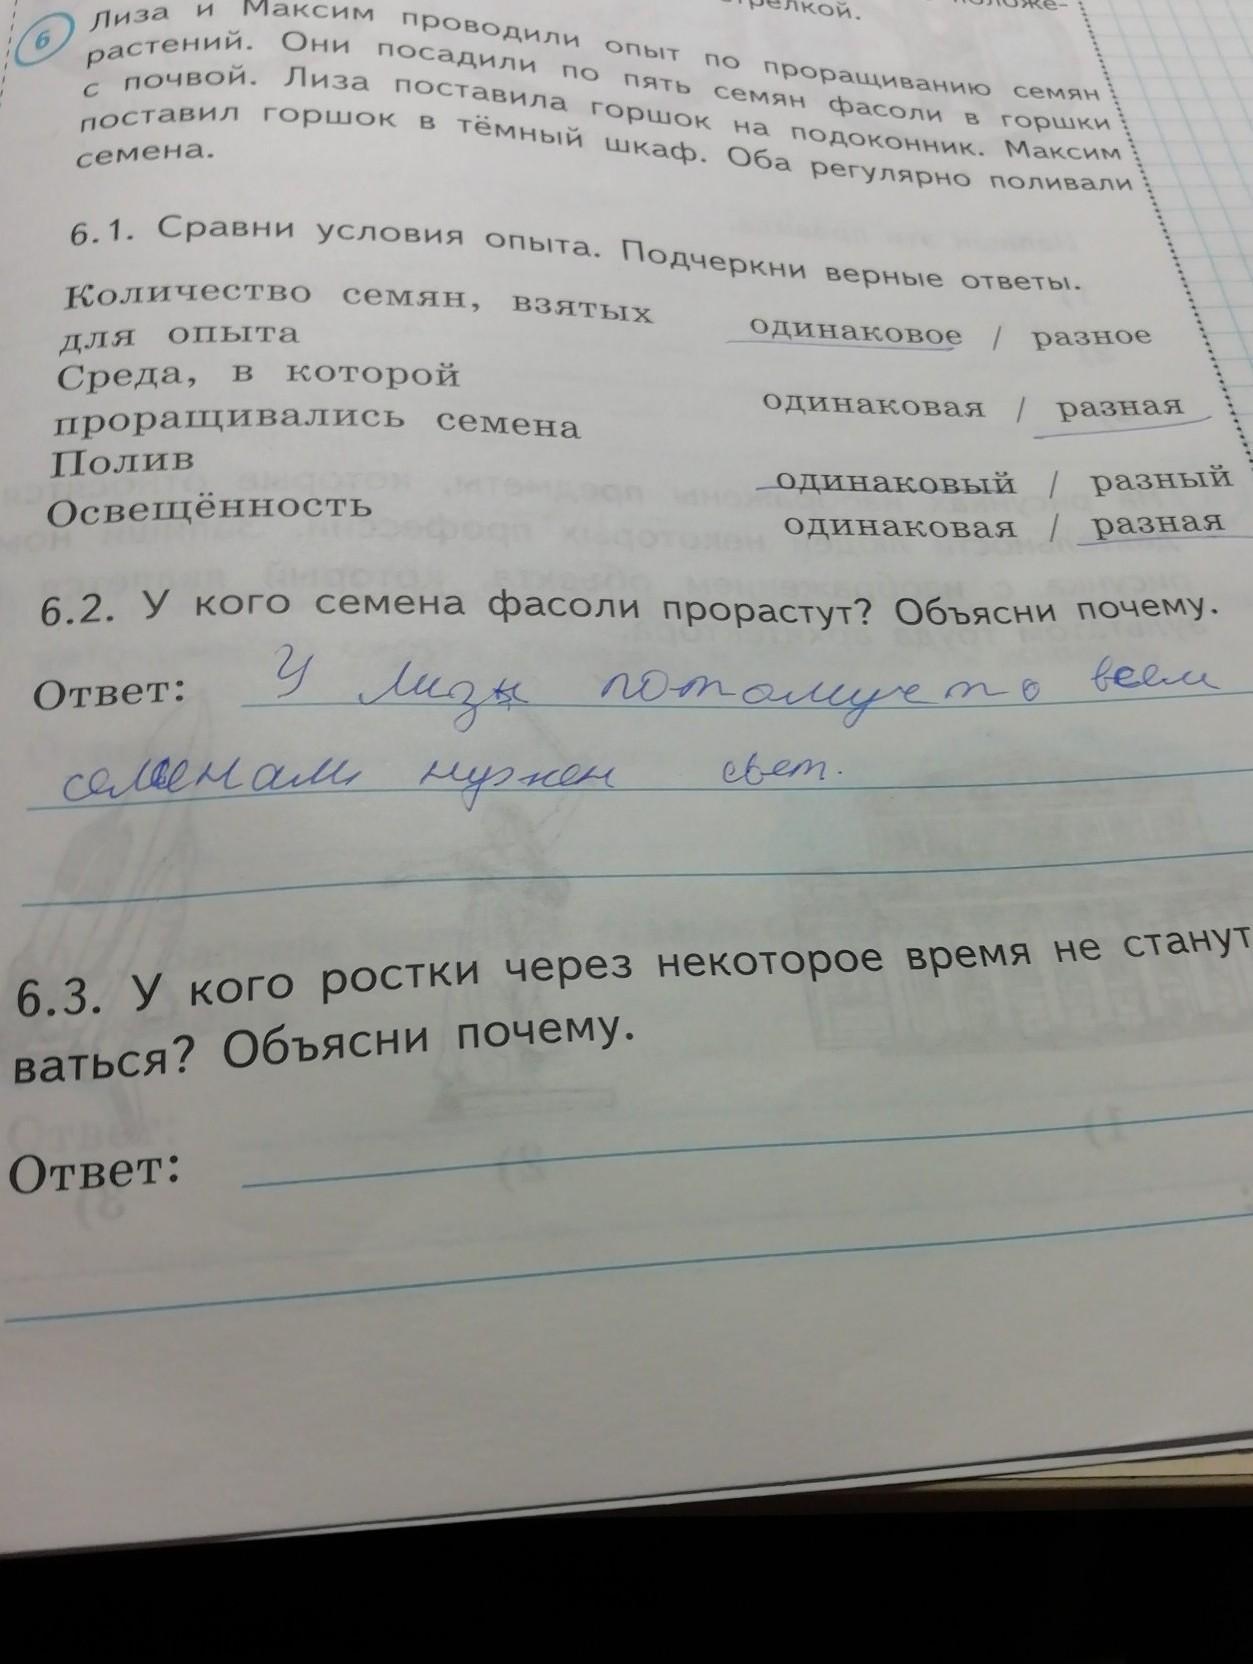 релкой.
6 Лиза и Максим проводили опыт по проращиванию семян
растений. Они посадили по пять семян фасоли в горшки
с почвой. Лиза поставила горшок на подоконник. Максим
поставил горшок в тёмный шкаф. Оба регулярно поливали
семена.
6.1. Сравни условия опыта. Подчеркни верные ответы.
Количество семян, взятых
для опыта одинаковое / разное
Среда, в которой
проращивались семена одинаковая / разная
Полив одинаковый / разный
Освещённость одинаковая / разная
6.2. У кого семена фасоли прорастут? Объясни почему.
Ответ: У Лизы потомучто всем
семенам нужен свет.
6.3. У кого ростки через некоторое время не станут
ваться? Объясни почему.
Ответ:
1)
2)
3)